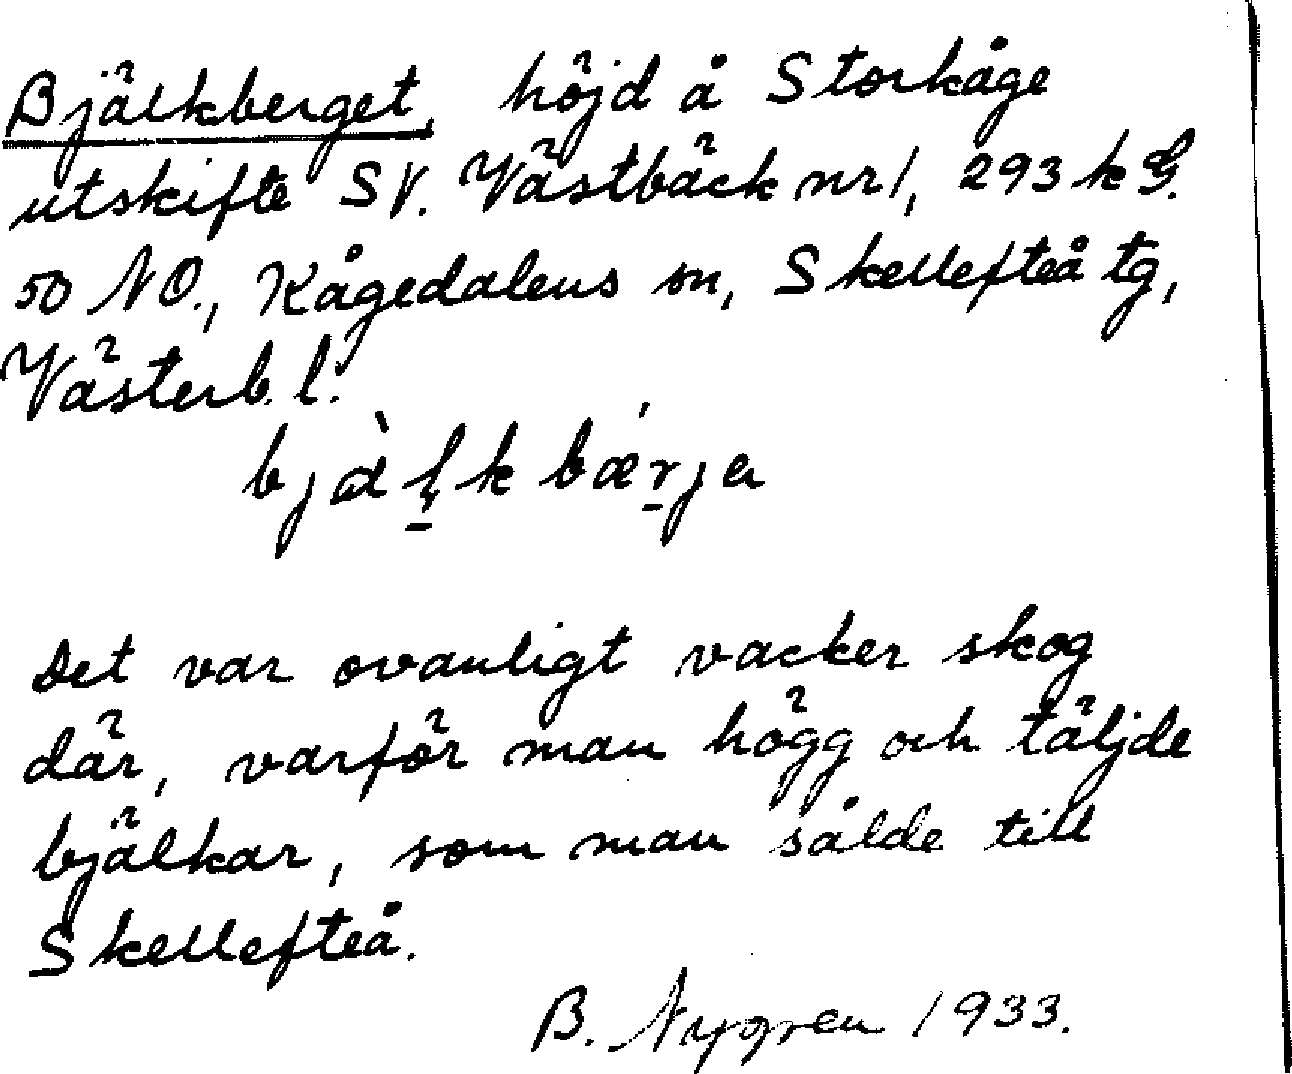 Bjälkberget, höjd å Storkåge
utskifte SV. Västbäck nr 1, 293 k G.
50 NO., Kågedalens sn, Skellefteå tg,
Västerb. l.
bjàl̥kbǽrja
Det var ovanligt vacker skog
där, varför man högg och täljde
bjälkar, som man sålde till
Skellefteå.
B. Nygren 1933.